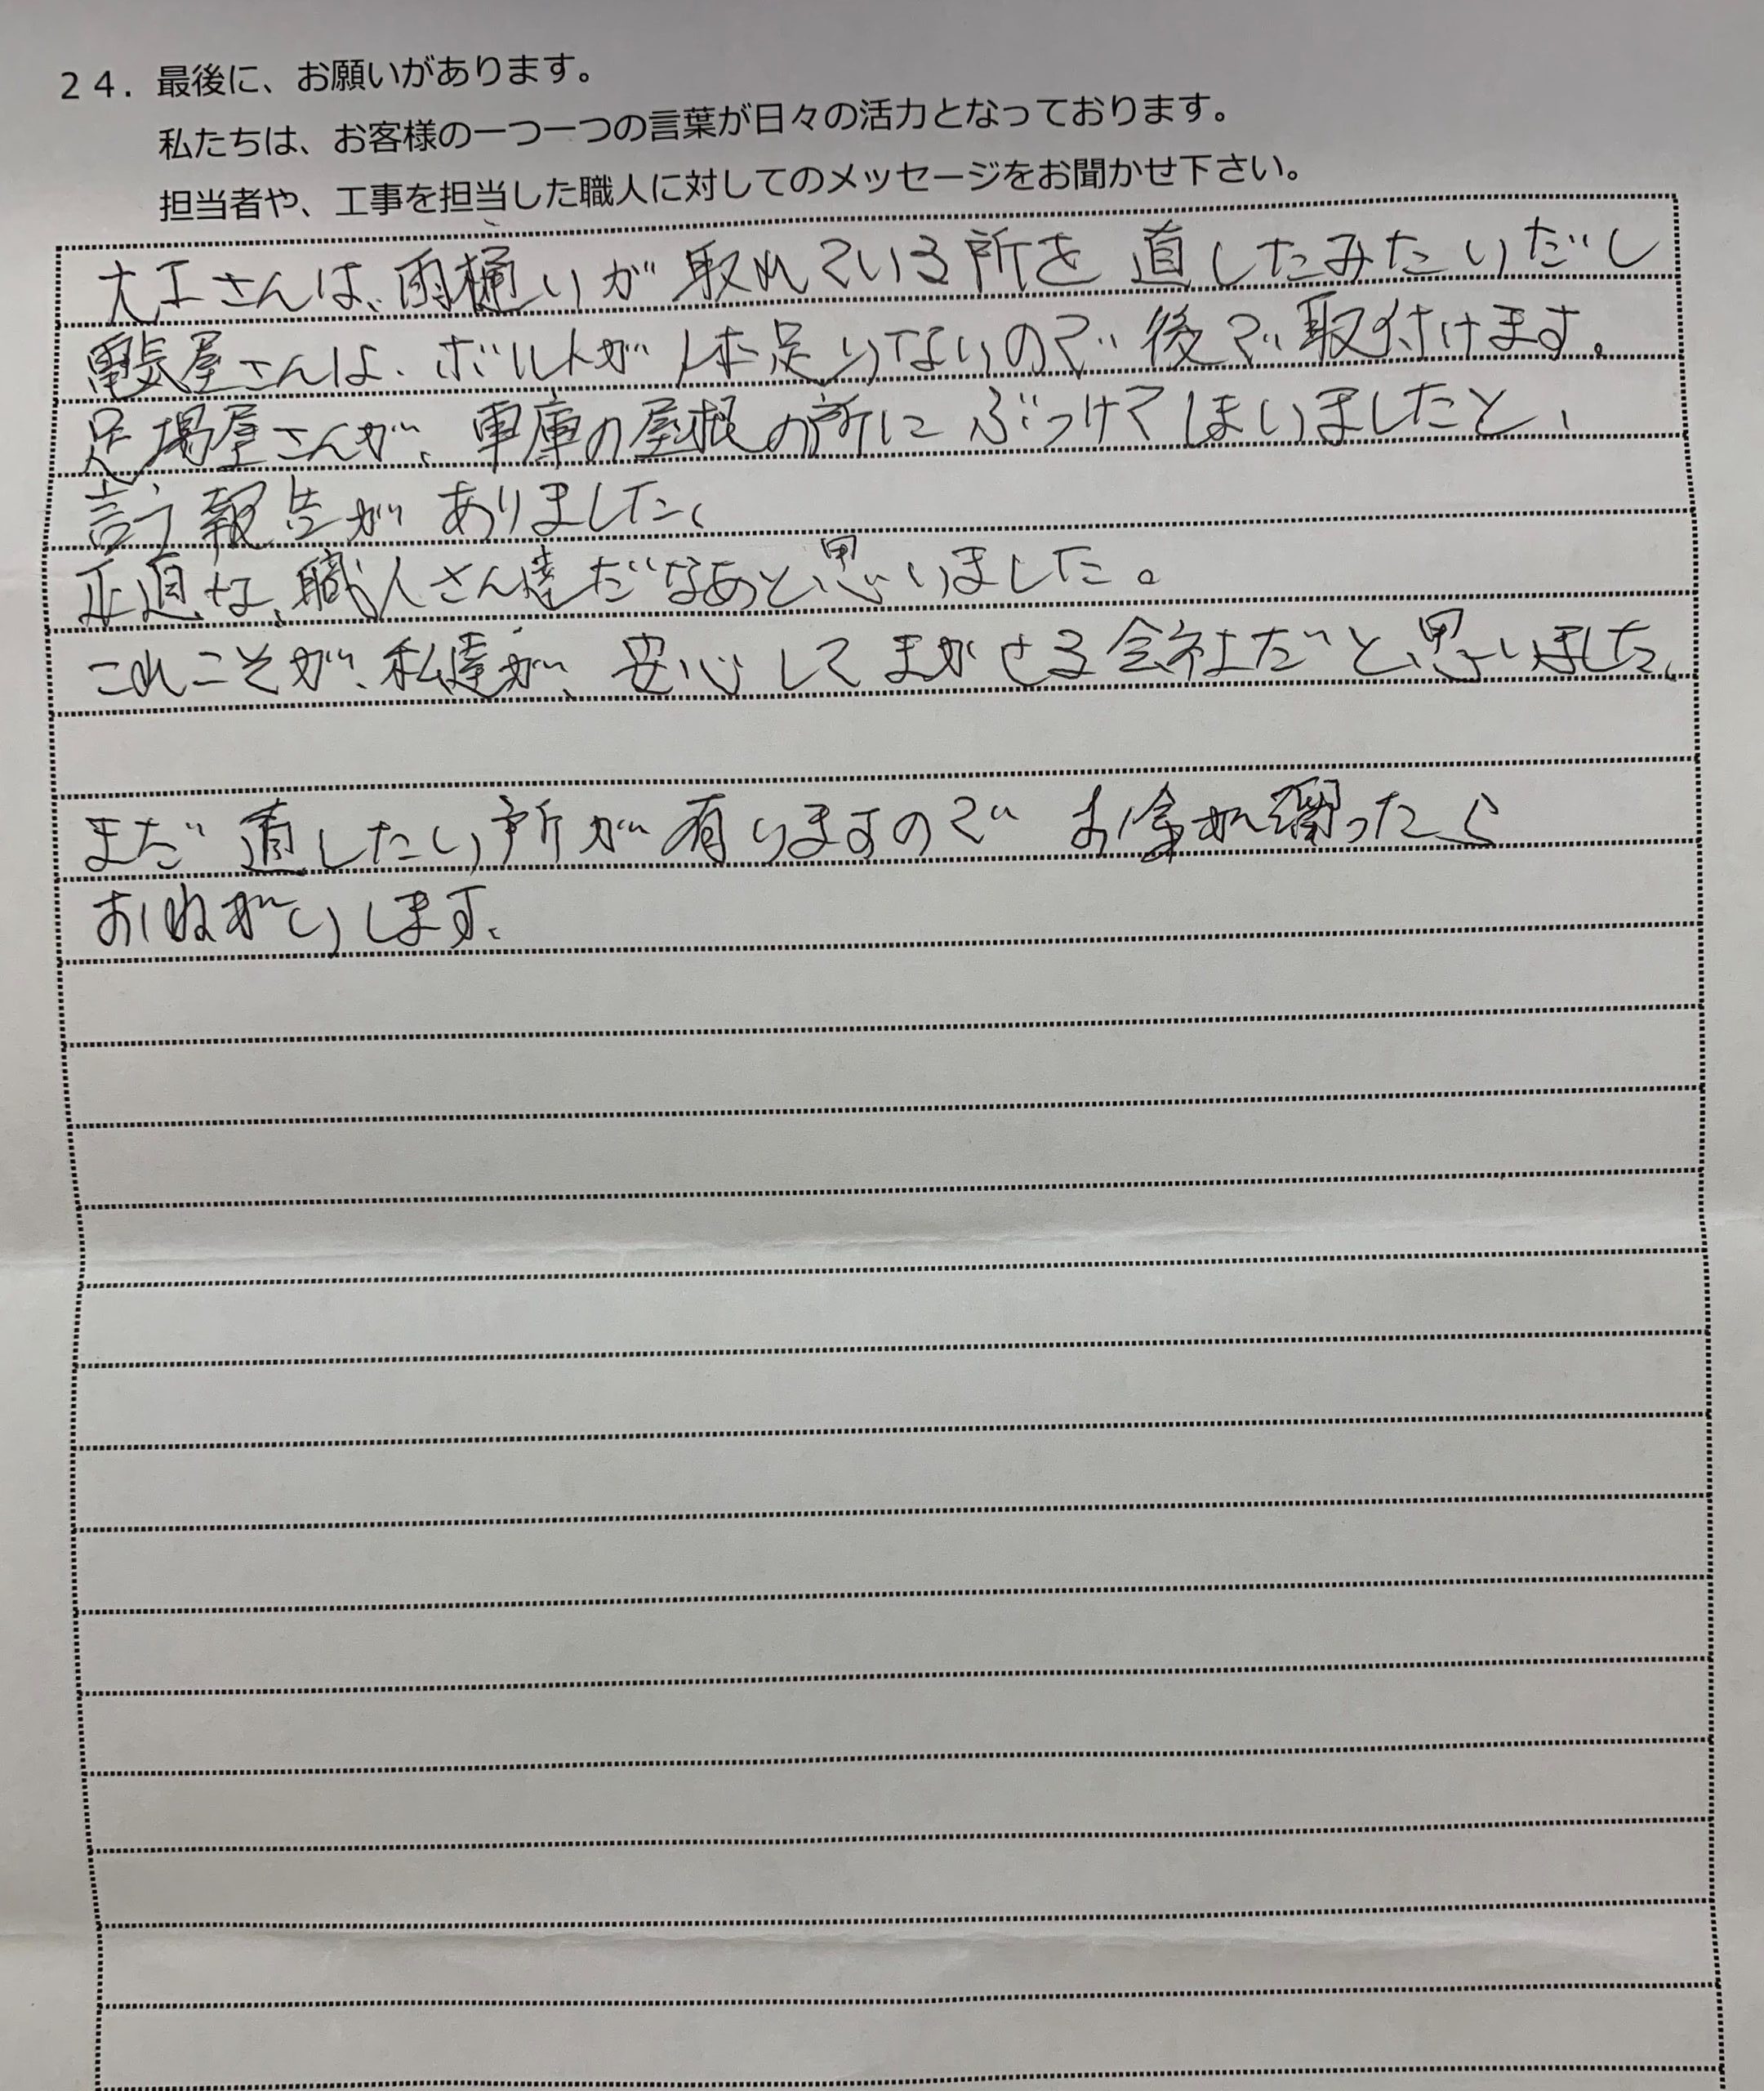 24. 最後に、お願いがあります。
私たちは、お客様の一つ一つの言葉が日々の活力となっております。
担当者や、工事を担当した職人に対してのメッセージをお聞かせ下さい。
大工さんは、雨樋いが取れている所を直したみたいだし
電気屋さんは、ボルトが1本足りないので後で取付けます。
足場屋さんが、車庫の屋根の所にぶつけてしまいましたと、
言う報告がありました、
正直な、職人さん達だなあと思いました。
これこそが、私達が、安心してまかせる会社だと思いました、
まだ直したい所が有りますのでお金が溜ったら
おねがいします、